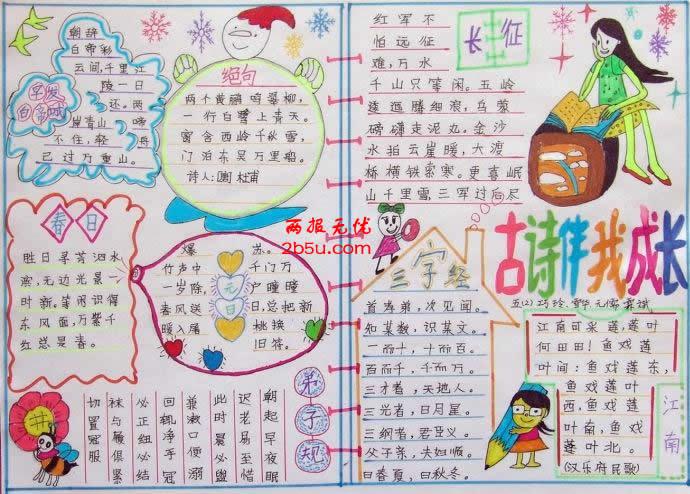 早发
白帝城
朝辞
白帝彩
云间,千里江
陵一日
还。两
岸青山
不住,轻舟
已过万重山。
绝句
两个黄鹂鸣翠柳,
一行白鹭上青天。
窗含西岭千秋雪,
门泊东吴万里船。
诗人:[唐]杜甫
春日
胜日寻芳泗水
滨,无边光景一
时新,等闲识得
东风面,万紫千
红总是春。
元日
爆
竹声中
一岁除,
春风送
暖入屠
苏。
千门万
户曈曈
日,总把新
桃换
旧符。
弟子规
朝起早夜眠
老易至惜
此时
晨必盥
兼漱口便溺
回辄净手冠
必正纽必结
袜与履俱紧
切置冠服
两报无优
2b5u.com
长征
红军不
怕远征
难,万水
千山只等闲。五岭
逶迤腾细浪,乌蒙
磅礴走泥丸。金沙
水拍云崖暖,大渡
桥横铁索寒。更喜岷
山千里雪,三军过后尽
古诗伴我成长
三字经
首孝弟,次见闻。
知某数,识某文。
一而十,十而百。
百而千,千而万。
三才者,天地人。
三光者,日月星。
三纲者,君臣义。
父子亲,夫妇顺。
曰春夏,曰秋冬。
五(2)
江南
江南可采莲,莲叶
何田田!鱼戏莲
叶间:鱼戏莲东,
鱼戏莲叶
西,鱼戏莲
叶南,鱼戏
莲叶北。
(汉乐府民歌)